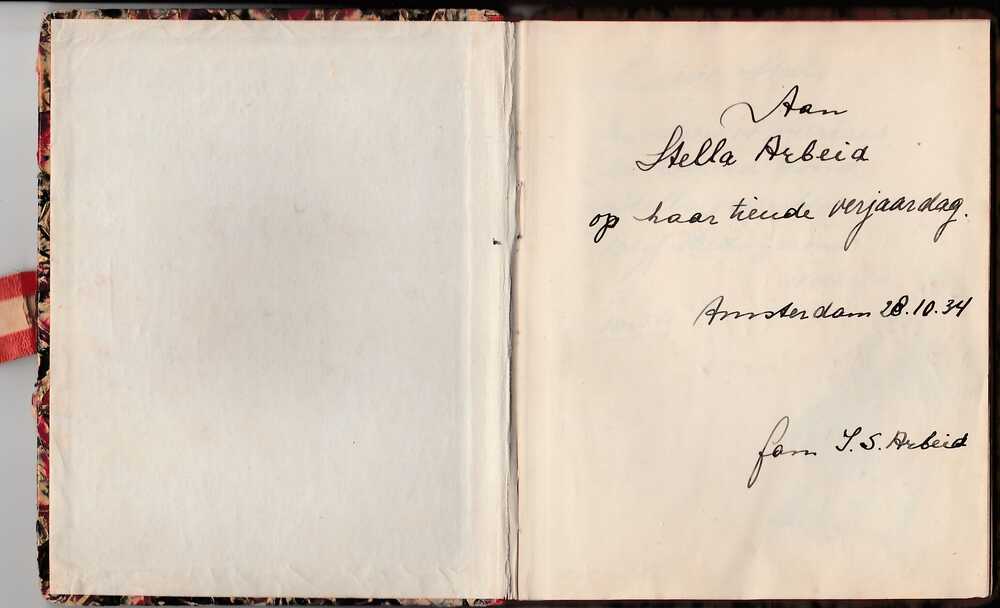 Aan
Stella Arbeid
op haar tiende verjaardag.
Amsterdam 28.10.34
fam I. S. Arbeid